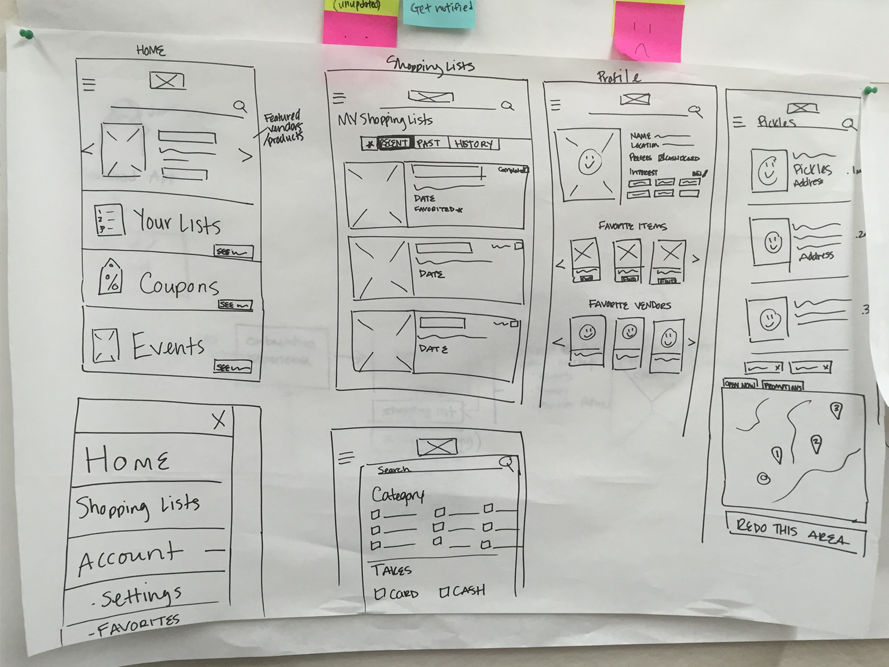 (unupdated)
Get notified
HOME
Featured
vendors
/products
Your Lists
1
2
3
SEE
%
Coupons
SEE
Events
SEE
Shopping Lists
MY Shopping Lists
PAST
HISTORY
Completed
DATE
FAVORITED
DATE
DATE
Profile
NAME
LOCATION
CASH
CARD
INTEREST
FAVORITE ITEMS
FAVORITE VENDORS
Pickles
Pickles
Address
.2
Address
.3
OPEN NOW
PROMOTIONS
3
1
2
REDO THIS AREA
X
HOME
Shopping Lists
Account —
. Settings
- FAVORITES
Search
Category
TAKES
CARD
CASH